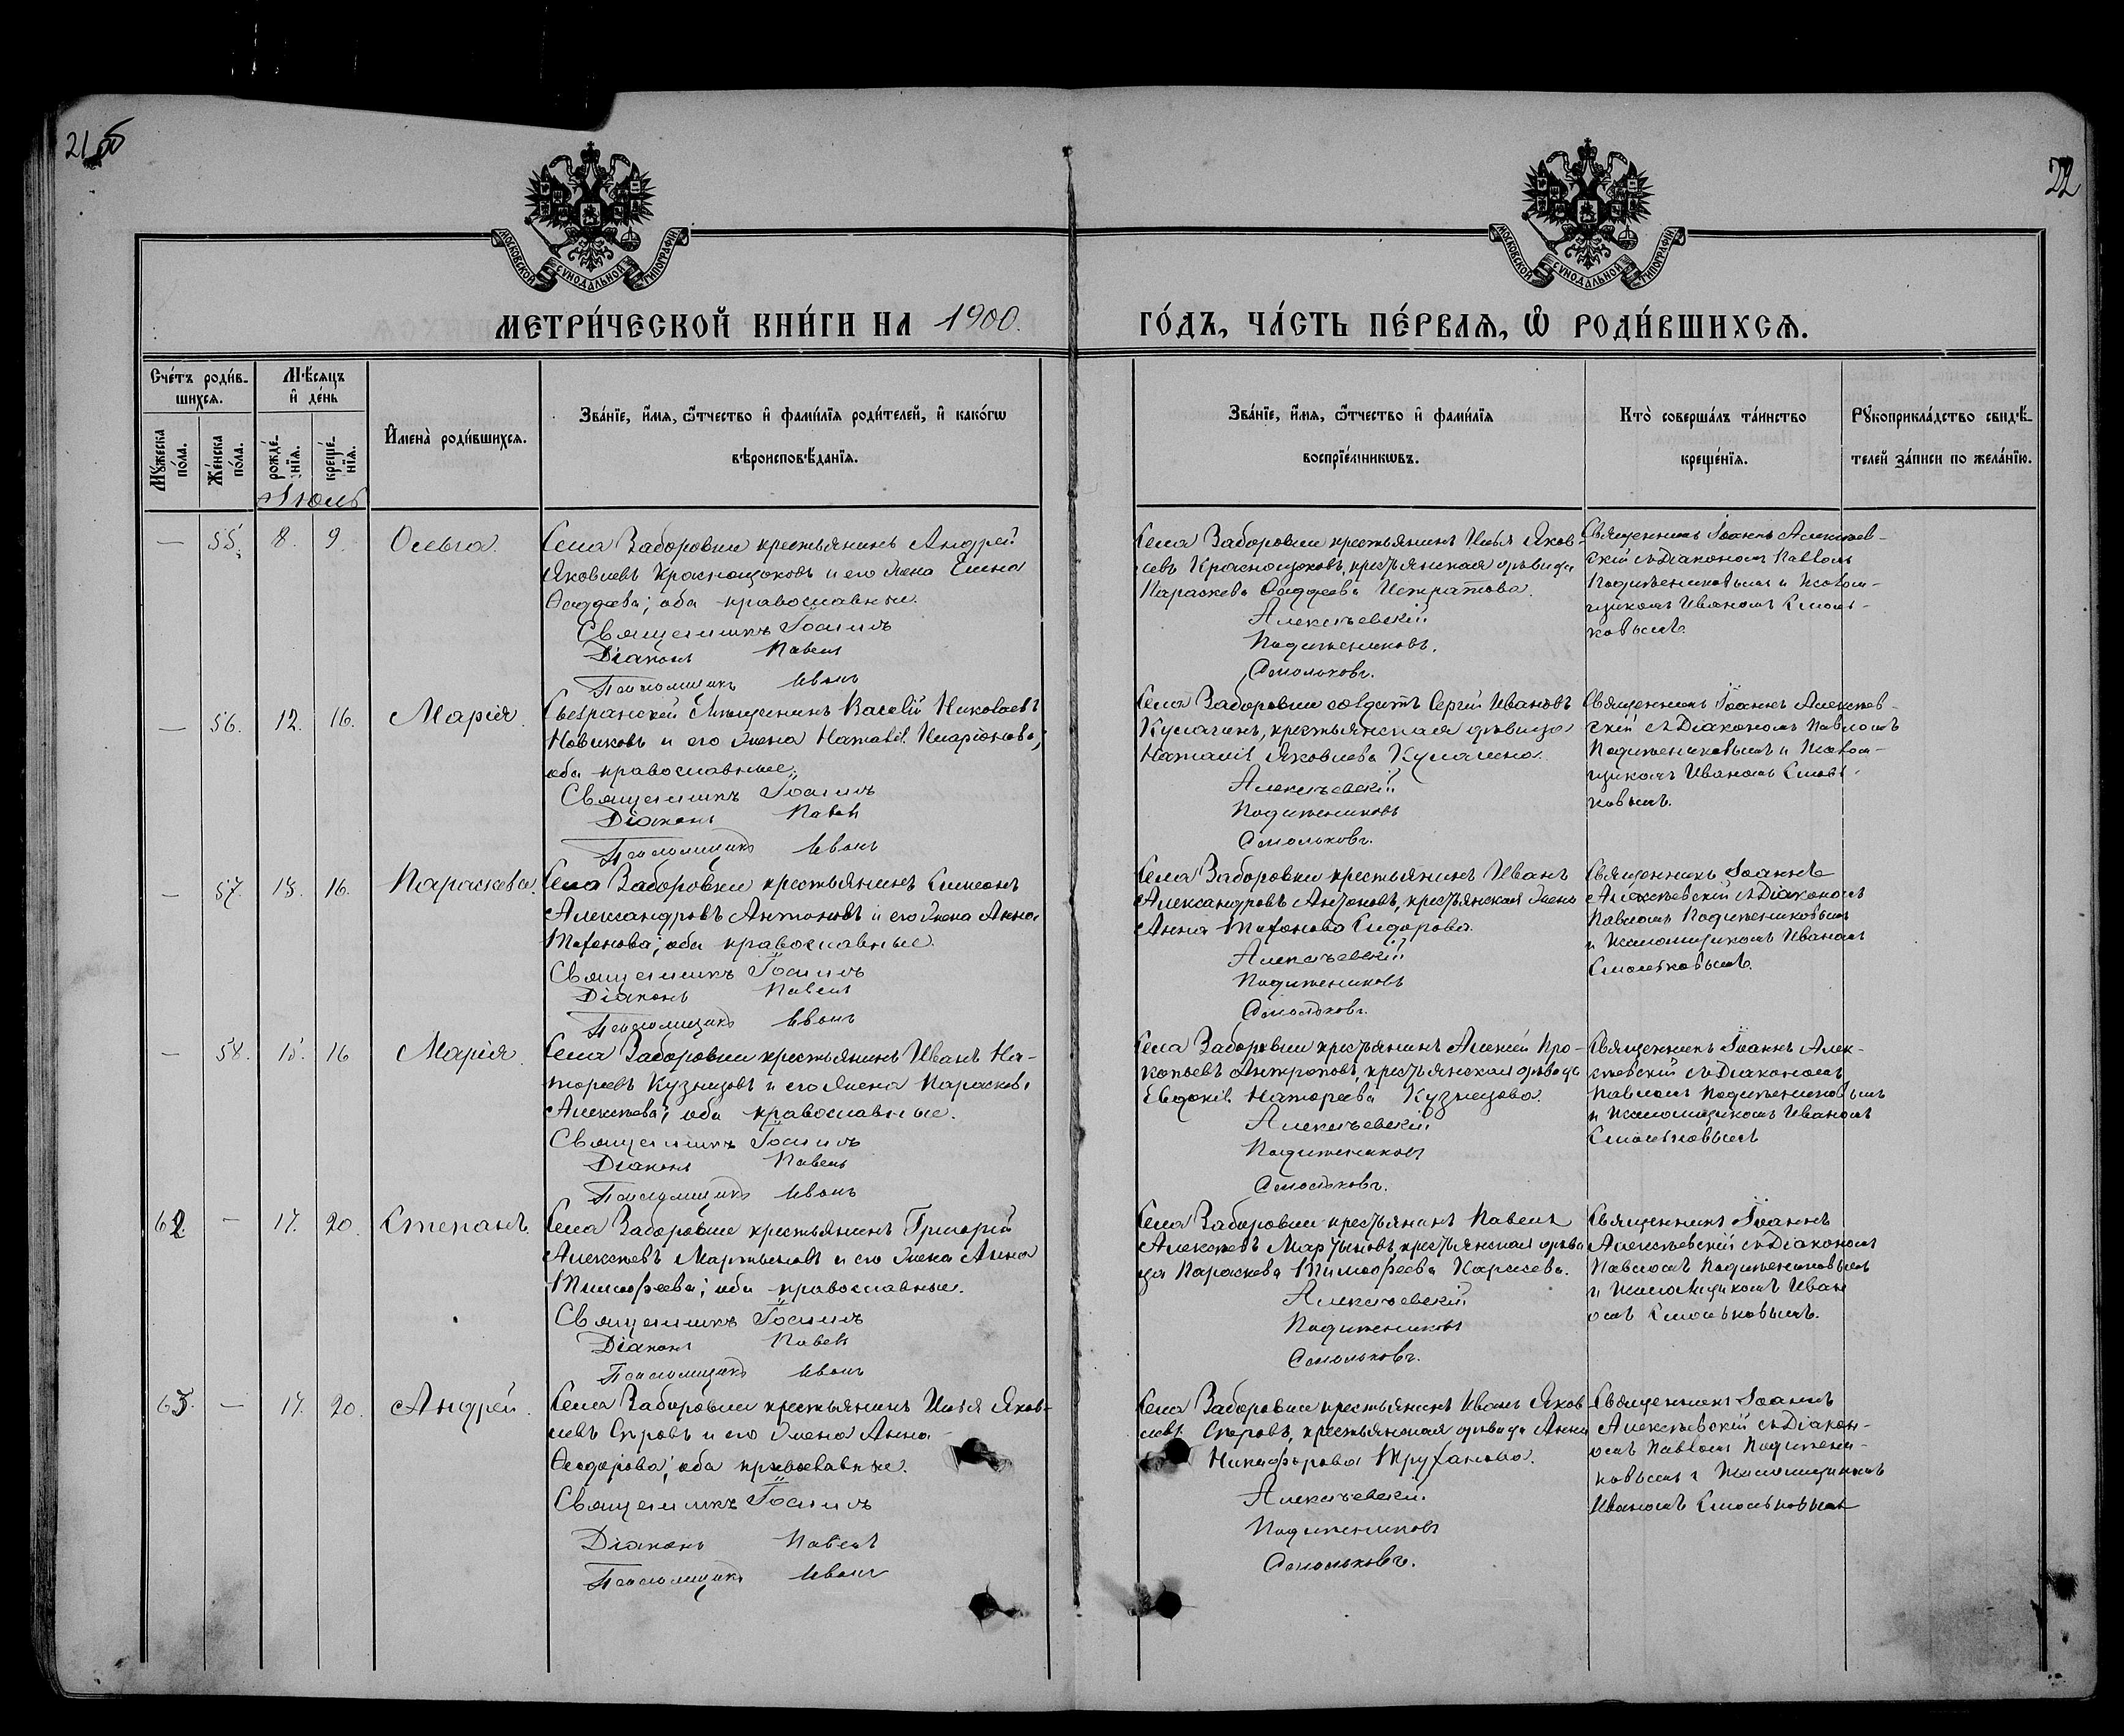 21 об
22
МОСКОВСКОЙ СѴНОДАЛЬНОЙ ТИПОГРАФІИ
МОСКОВСКОЙ СѴНОДАЛЬНОЙ ТИПОГРАФІИ
МЕТРИ́ЧЕСКОЙ КНИ́ГИ НА 1900.
ГО́ДЪ, ЧА́СТЬ ПЕ́РВАѦ, Ѽ РОДИ́ВШИХСѦ.
Сче́тъ роди́в-
шихсѧ.
Мꙋ́жеска по́ла.
Же́нска по́ла.
Мѣ́сяцъ и҆ де́нь
рожде́-нїѧ.
креще́-нїѧ.
Іюль
И҆мена̀ роди́вшихсѧ.
Зва́нїе, и҆́мѧ, ѻ҆́тчество и҆ фами́лїѧ роди́телей, и҆ како́гѡ
вѣроисповѣ́данїѧ.
Зва́нїе, и҆́мѧ, ѻ҆́тчество и҆ фами́лїѧ
воспрїе́мникѡвъ.
Кто̀ соверша́лъ та́инство
креще́нїѧ.
Рꙋкоприкла́дство свидѣ́-
телей за́писи по жела́нїю.
— 55. 8. 9. Ольга.
Села Заборовки крестьянинъ Андрей
Яковлевъ Краснощоковъ и его жена Елена
Фаддева; оба православные.
Священникъ Іоаннъ
Діаконъ Павелъ
Псаломщикъ Иванъ
Села Заборовки крестьянинъ Илья Яков-
левъ Краснощоковъ, крестьянская дѣвица
Параскева Фаддеева Истратова.
Алексѣевскій
Подъячениковъ.
Смольковъ.
Священникъ Іоаннъ Алексѣев-
скій съ Діакономъ Павломъ
и Псалом-
щикомъ Иваномъ Смоль-
ковымъ.
— 56. 12. 16. Марія.
Сызранскій Мѣщанинъ Василій Николаевъ
Новиковъ и его жена Наталія Иларіонова;
оба православные.
Священникъ Іоаннъ
Діаконъ Павелъ
Псаломщикъ Иванъ
Села Заборовки солдатъ Сергій Ивановъ
Кулагинъ, крестьянская дѣвица
Наталія Яковлева Кулагина.
Алексѣевскій
Смольковъ.
Священникъ Іоаннъ Алексѣев-
скій съ Діакономъ Павломъ
и Псалом-
щикомъ Иваномъ Смоль-
ковымъ.
— 57. 13. 16. Параскева.
Села Заборовки крестьянинъ Симеонъ
Александровъ Антоновъ и его жена Анна
оба православные.
Священникъ Іоаннъ
Діаконъ Павелъ
Псаломщикъ Иванъ
Села Заборовки крестьянинъ Иванъ
Александровъ Антоновъ, крестьянская жена
Анна Сидорова.
Алексѣевскій
Смольковъ.
Священникъ Іоаннъ
Алексѣевскій съ Діакономъ
Павломъ
и Псаломщикомъ Иваномъ
Смольковымъ.
— 58. 15. 16 Марія.
Села Заборовки крестьянинъ Иванъ На-
торевъ Кузнецовъ и его жена Параскева
Алексѣева; оба православные.
Священникъ Іоаннъ
Діаконъ Павелъ
Псаломщикъ Иванъ
Села Заборовки крестьянинъ Алексій Про-
копьевъ Антроповъ, крестьянская дѣвица
Евдокія Наторева Кузнецова.
Алексѣевскій
Смольковъ.
Священникъ Іоаннъ Алек-
сѣевскій съ Діакономъ
Павломъ
и Псаломщикомъ Иваномъ
Смольковымъ
62 — 17. 20. Степанъ.
Села Заборовки крестьянинъ Григорій
Алексѣевъ Мартыновъ и его жена Анна
Тимофеева; оба православные.
Священникъ Іоаннъ
Діаконъ Павелъ
Псаломщикъ Иванъ
Села Заборовки крестьянинъ Павелъ
Алексѣевъ Мартыновъ, крестьянская дѣви-
ца Параскева Тимофеева Карасева.
Алексѣевскій
Смольковъ.
Священникъ Іоаннъ
Алексѣевскій съ Діакономъ
Павломъ
и Псаломщикомъ Иван
омъ Смольковымъ.
63. — 17. 20. Андрей.
Села Заборовки крестьянинъ Илья Яков-
левъ и его жена Анна
Феодорова; оба православные.
Священникъ Іоаннъ
Діаконъ Павелъ
Псаломщикъ Иванъ
Села Заборовки крестьянинъ Иванъ Яков
левъ крестьянская дѣвица Анна
Никифорова Труханова.
Алексѣевскій
Смольковъ.
Священникъ Іоаннъ
Алексѣевскій съ Діакон-
омъ Павломъ
и Псаломщикомъ
Иваномъ Смольковымъ